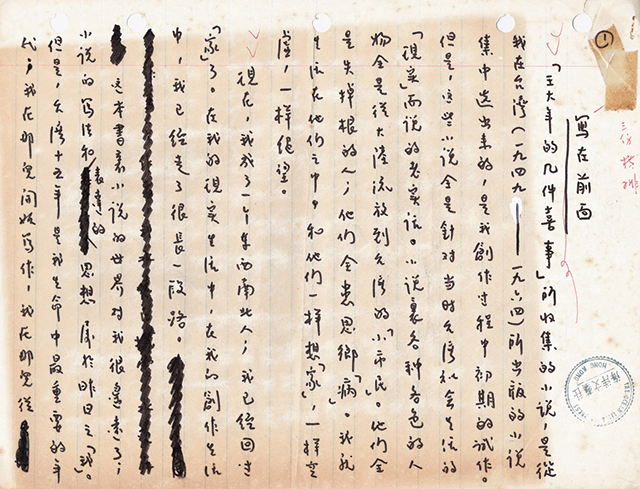 ①
寫在前面
「王大年的几件喜事」所收集的小说，是從
我在台湾(一九四九——一九六四)所出版的小说
集中选出来的，是我創作过程中初期的试作。
但是，这些小说全是針对当时台湾社会生活的
「现实」而说的老实话。小说裏各种各色的人
物全是從大陸流放到台湾的「小市民」。他们全
是失掉根的人；他们全患思鄉「病」。我就
生活在他们之中，和他们一样想「家」，一样空
虚，一样绝望。
現在，我成了一个東西南北人；我已经回过
「家」了。在我的現实生活中，在我的創作生活
中，我已经走了很長一段路。
这本書裏小说的世界对我很遥远了；
小说的写法和表達的思想属於昨日之「我」。
但是，台湾十五年是我生命中最重要的年
代，我在那兒開始写作，我在那兒從
海洋文藝社
HONG KONG